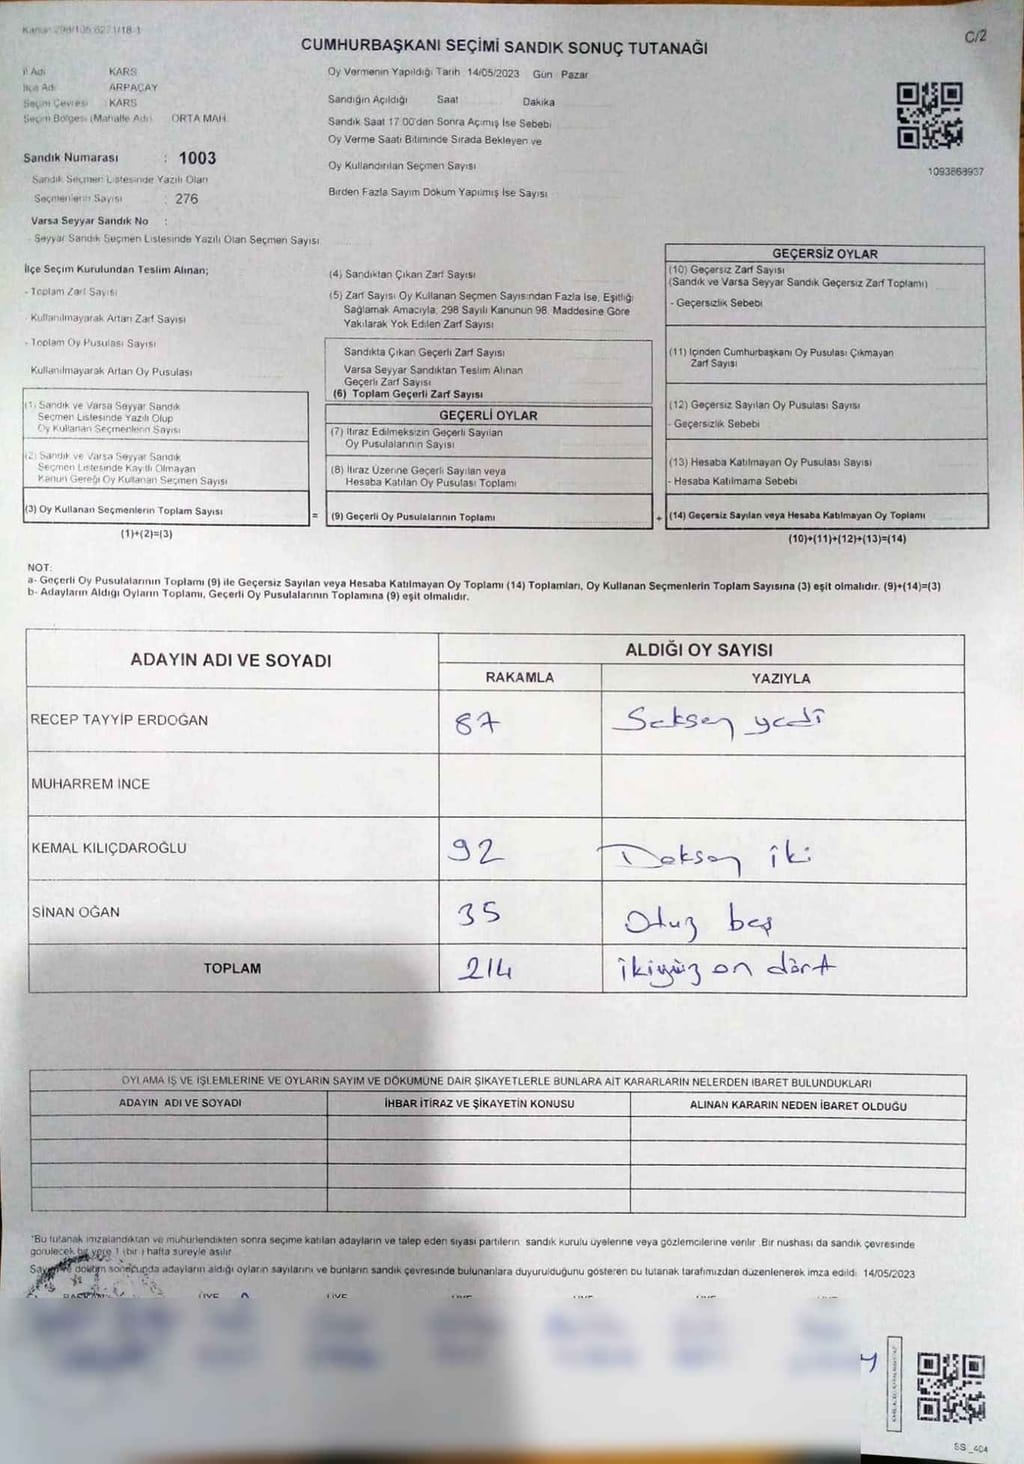 C/2
CUMHURBAŞKANI SEÇİMİ SANDIK SONUÇ TUTANAĞI
İl Adı KARS
İlçe Adı ARPAÇAY
Seçim Çevresi KARS
Seçim Bölgesi (Mahalle Adı) ORTA MAH
Sandık Numarası : 1003
Sandık Seçmen Listesinde Yazılı Olan
Seçmenlerin Sayısı : 276
Varsa Seyyar Sandık No :
- Seyyar Sandık Seçmen Listesinde Yazılı Olan Seçmen Sayısı
Oy Vermenin Yapıldığı Tarih 14/05/2023 Gün Pazar
Sandığın Açıldığı Saat Dakika
Sandık Saat 17:00'den Sonra Açımış İse Sebebi
Oy Verme Saati Bitiminde Sırada Bekleyen ve
Oy Kullandırılan Seçmen Sayısı
Birden Fazla Sayım Döküm Yapılmış İse Sayısı
1093868937
İlçe Seçim Kurulundan Teslim Alınan;
- Toplam Zarf Sayısı
- Kullanılmayarak Artan Zarf Sayısı
- Toplam Oy Pusulası Sayısı
Kullanılmayarak Artan Oy Pusulası
(1) Sandık ve Varsa Seyyar Sandık
Seçmen Listesinde Yazılı Olup
Oy Kullanan Seçmenlerin Sayısı
(2) Sandık ve Varsa Seyyar Sandık
Seçmen Listesinde Kayıtlı Olmayan
Kanun Gereği Oy Kullanan Seçmen Sayısı
(3) Oy Kullanan Seçmenlerin Toplam Sayısı
(1)+(2)=(3)
(4) Sandıktan Çıkan Zarf Sayısı
(5) Zarf Sayısı Oy Kullanan Seçmen Sayısından Fazla İse, Eşitliği
Sağlamak Amacıyla, 298 Sayılı Kanunun 98. Maddesine Göre
Yakılarak Yok Edilen Zarf Sayısı
Sandıkta Çıkan Geçerli Zarf Sayısı
Varsa Seyyar Sandıktan Teslim Alınan
Geçerli Zarf Sayısı
(6) Toplam Geçerli Zarf Sayısı
GEÇERLİ OYLAR
(7) İtiraz Edilmeksizin Geçerli Sayılan
Oy Pusulalarının Sayısı
(8) İtiraz Üzerine Geçerli Sayılan veya
Hesaba Katılan Oy Pusulası Toplamı
= (9) Geçerli Oy Pusulalarının Toplamı
GEÇERSİZ OYLAR
(10) Geçersiz Zarf Sayısı
(Sandık ve Varsa Seyyar Sandık Geçersiz Zarf Toplamı)
- Geçersizlik Sebebi
(11) İçinden Cumhurbaşkanı Oy Pusulası Çıkmayan
Zarf Sayısı
(12) Geçersiz Sayılan Oy Pusulası Sayısı
- Geçersizlik Sebebi
(13) Hesaba Katılmayan Oy Pusulası Sayısı
- Hesaba Katılmama Sebebi
+ (14) Geçersiz Sayılan veya Hesaba Katılmayan Oy Toplamı
(10)+(11)+(12)+(13)=(14)
NOT:
a- Geçerli Oy Pusulalarının Toplamı (9) ile Geçersiz Sayılan veya Hesaba Katılmayan Oy Toplamı (14) Toplamları, Oy Kullanan Seçmenlerin Toplam Sayısına (3) eşit olmalıdır. (9)+(14)=(3)
b- Adayların Aldığı Oyların Toplamı, Geçerli Oy Pusulalarının Toplamına (9) eşit olmalıdır.
ADAYIN ADI VE SOYADI ALDIĞI OY SAYISI
RAKAMLA YAZIYLA
RECEP TAYYİP ERDOĞAN 87 Seksen yedi
MUHARREM İNCE
KEMAL KILIÇDAROĞLU 92 Doksan iki
SİNAN OĞAN 35 Otuz beş
TOPLAM 214 ikiyüz on dört
OYLAMA İŞ VE İŞLEMLERİNE VE OYLARIN SAYIM VE DÖKÜMÜNE DAİR ŞİKAYETLERLE BUNLARA AİT KARARLARIN NELERDEN İBARET BULUNDUKLARI
ADAYIN ADI VE SOYADI İHBAR İTİRAZ VE ŞİKAYETİN KONUSU ALINAN KARARIN NEDEN İBARET OLDUĞU
*Bu tutanak imzalandıktan ve mühürlendikten sonra seçime katılan adayların ve talep eden siyasi partilerin sandık kurulu üyelerine veya gözlemcilerine verilir. Bir nüshası da sandık çevresinde
görülecek bir yere 1 (bir) hafta süreyle asılır
Sayım ve döküm sonucunda adayların aldığı oyların sayılarını ve bunların sandık çevresinde bulunanlara duyurulduğunu gösteren bu tutanak tarafımızdan düzenlenerek imza edildi. 14/05/2023
SS_404